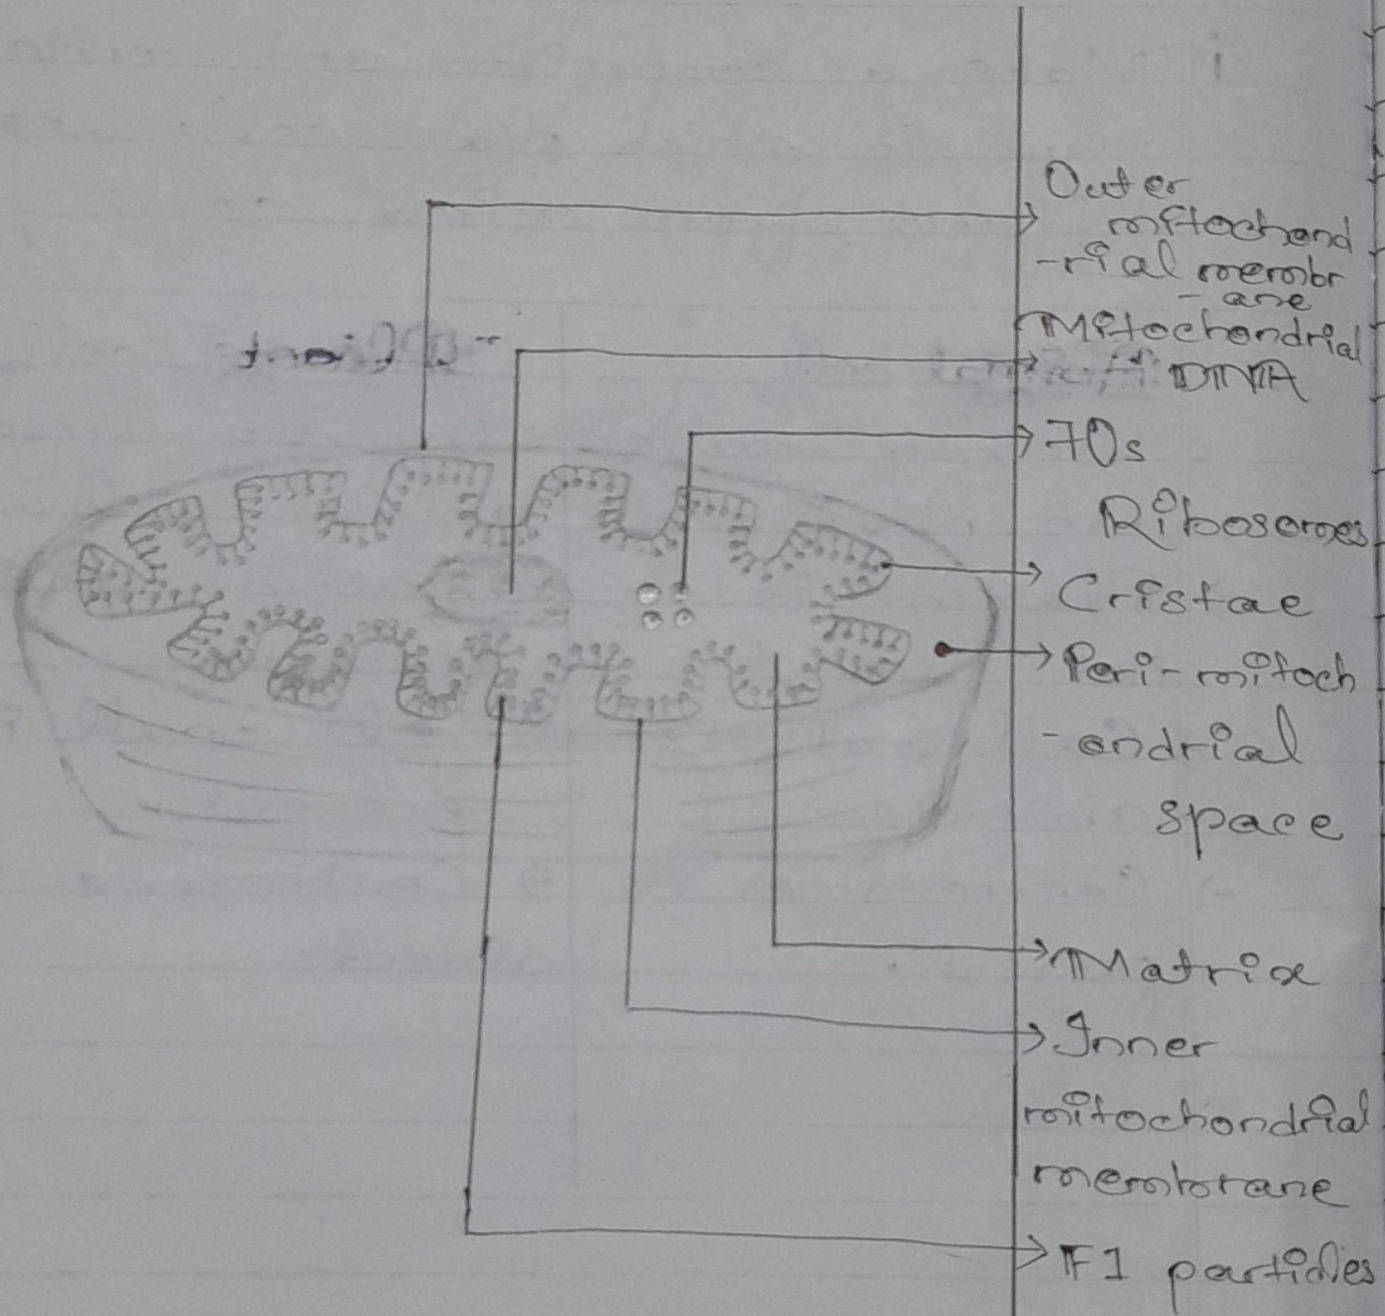 Outer
mitochond
-rial membr
-ane
Mitochondrial
DNA
70s
Ribosomes
Cristae
Peri-mitoch
-ondrial
space
Matrix
Inner
mitochondrial
membrane
F1 particles